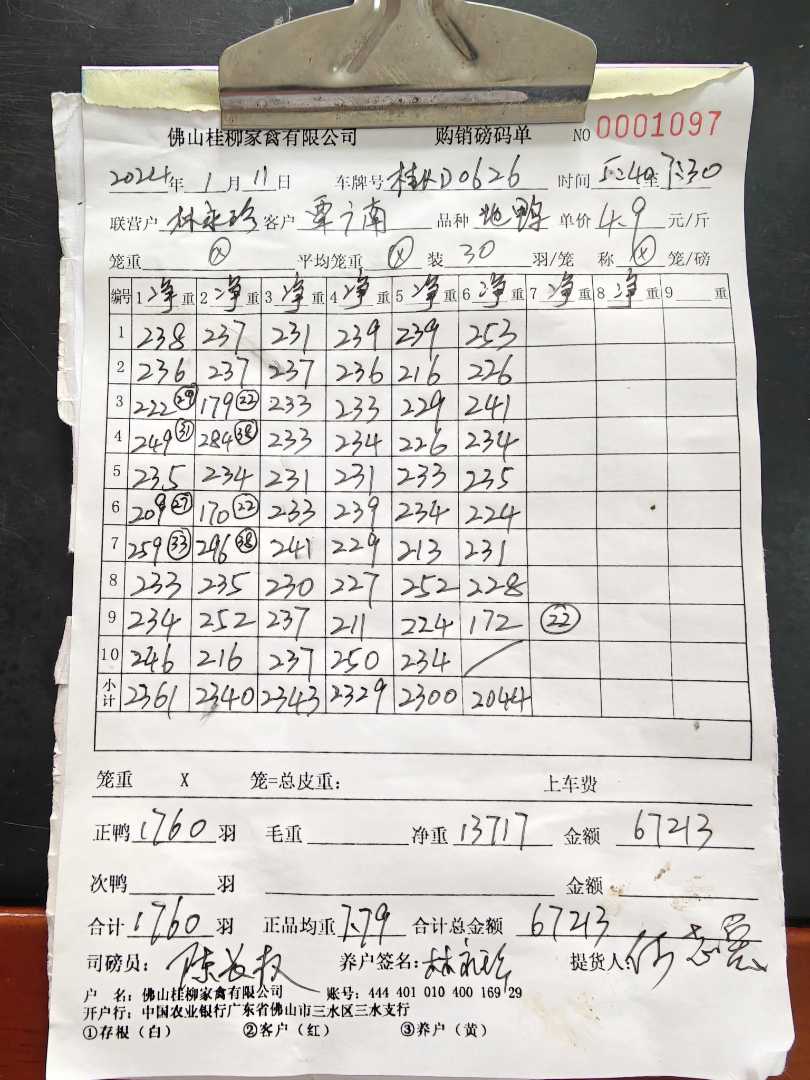 佛山桂柳家禽有限公司 购销磅码单 NO 0001097
2024年 1月 11日 车牌号 桂KD0626 时间 5:40至7:30
联营户 林永珍 客户 覃广南 品种 地鸭 单价 4.9 元/斤
笼重 ⓧ 平均笼重 ⓧ 装 30 羽/笼 称 ⓧ 笼/磅
编号 1净重 2净重 3净重 4净重 5净重 6净重 7净重 8净重 9 重
1 238 237 231 239 239 253
2 236 237 237 236 216 226
3 222㉙ 179㉒ 233 233 229 241
4 249㉛ 284㊳ 233 234 226 234
5 235 234 231 231 233 235
6 209㉗ 170㉒ 233 239 234 224
7 259㉝ 296㊳ 241 229 213 231
8 233 235 230 227 252 228
9 234 252 237 211 224 172 ㉒
10 246 216 237 250 234 /
小计 2361 2340 2343 2329 2300 2044
笼重 X 笼=总皮重: 上车费
正鸭 1760 羽 毛重 净重 13717 金额 67213
次鸭 羽 金额
合计 1760 羽 正品均重 7.79 合计总金额 67213
司磅员: 养户签名: 林永珍 提货人:
户 名: 佛山桂柳家禽有限公司 账号: 444 401 010 400 169 29
开户行: 中国农业银行广东省佛山市三水区三水支行
①存根(白) ②客户(红) ③养户(黄)